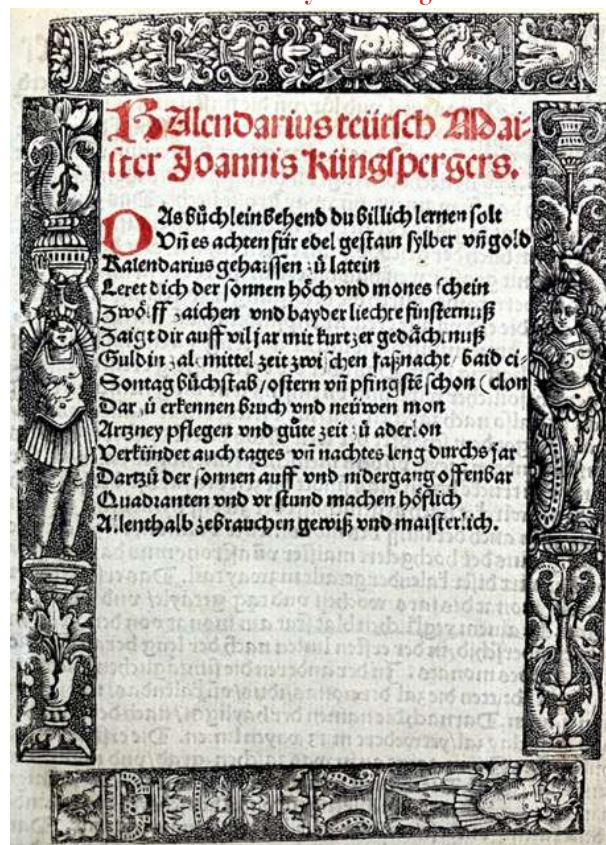 Kalendarius teütsch Mai-
ster Joannis Küngspergers.
DAs bůchlein behend du billich lernen solt
Vñ es achten für edel gestain sylber vñ gold
Kalendarius gehaissen zů latein
Leret dich der sonnen hôch vnd mones schein
Zwôlff zaichen vnd bayder liechte finsternuß
Zaigt dir auff vil jar mit kurtzer gedâchtnuß
Guldin zal mittel zeit zwischen faßnacht / baid ci-
Sontag bůchstab / ostern vñ pfingstē schon (clon
Darzů erkennen bruch vnd neüwen mon
Artzney pflegen vnd gůte zeit zů aderlon
Verkündet auch tages vñ nachtes leng durchs jar
Dartzů der sonnen auff vnd nidergang offenbar
Quadranten vnd vr stund machen hôflich
Allenthalb zebrauchen gewiß vnd maisterlich.